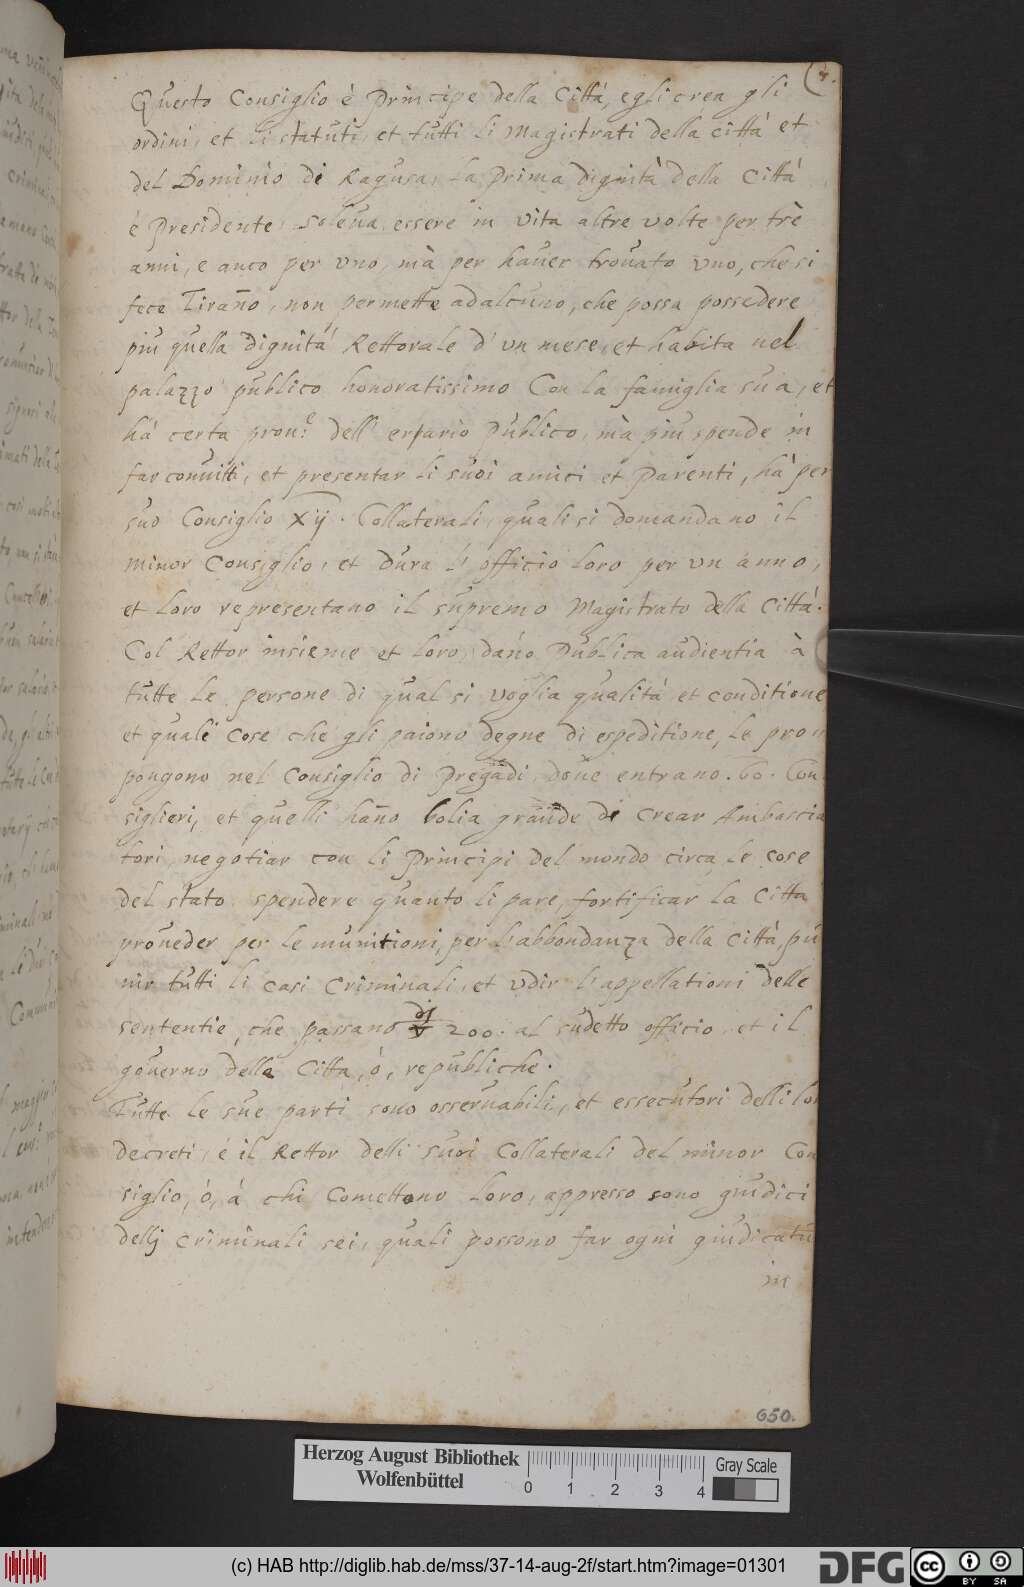 4.
Questo Consiglio è Principe della Città, egli crea gli
ordini, et li statuti, et tutti li Magistrati della città et
del Dominio di Ragusa, La Prima dignità della Città
è Presidente, soleua essere in vita altre volte per trè
anni, e anco per vno, mà per hauer trouato vno, che si
fece Tirano, non permette ad alcuno, che possa possedere
piu quella dignità Rettorale d' vn mese, et habita nel
palazzo publico honoratissimo Con la famiglia sua, et
hà certa prou:e dell' erario Publico, mà piu spende in
far conuitti, et presentar li suoi amici et Parenti, hà per
suo Consiglio Xij. Collaterali, quali si domandano il
minor Consiglio, et dura l' officio loro per vn anno,
et loro representano il supremo Magistrato della Città.
Col Rettor insieme et loro, dano Publica audientia à
tutte le persone di qual si voglia qualità et conditione
et quale cose che gli paiono degne di espeditione, le pro
pongono nel Consiglio di Pregadi, doue entrano .60. Con
siglieri, et quelli hano bolia grande di crear Ambascia
tori, negotiar con li Principi del mondo circa le cose
del stato spendere quanto li pare, fortificar la Citta
proueder per le munitioni, per l'abbondanza della Città, pu
nir tutti li casi Criminali, et vdir l'appellationi delle
sententie, che passano di 200. al sudetto officio, et il
gouerno della Citta, ò, republiche.
Tutte le sue parti sono osseruabili, et essecutori delli lor
decreti, é il Rettor delli suoi Collaterali del minor Con
siglio, ò, á chi Comettono loro, appresso sono giudici
dellj criminali sei, quali possono far ogni giudicatu
in
650.
Herzog August Bibliothek
Wolfenbüttel
0 1 2 3 4
Gray Scale
(c) HAB http://diglib.hab.de/mss/37-14-aug-2f/start.htm?image=01301
DFG
cc BY SA